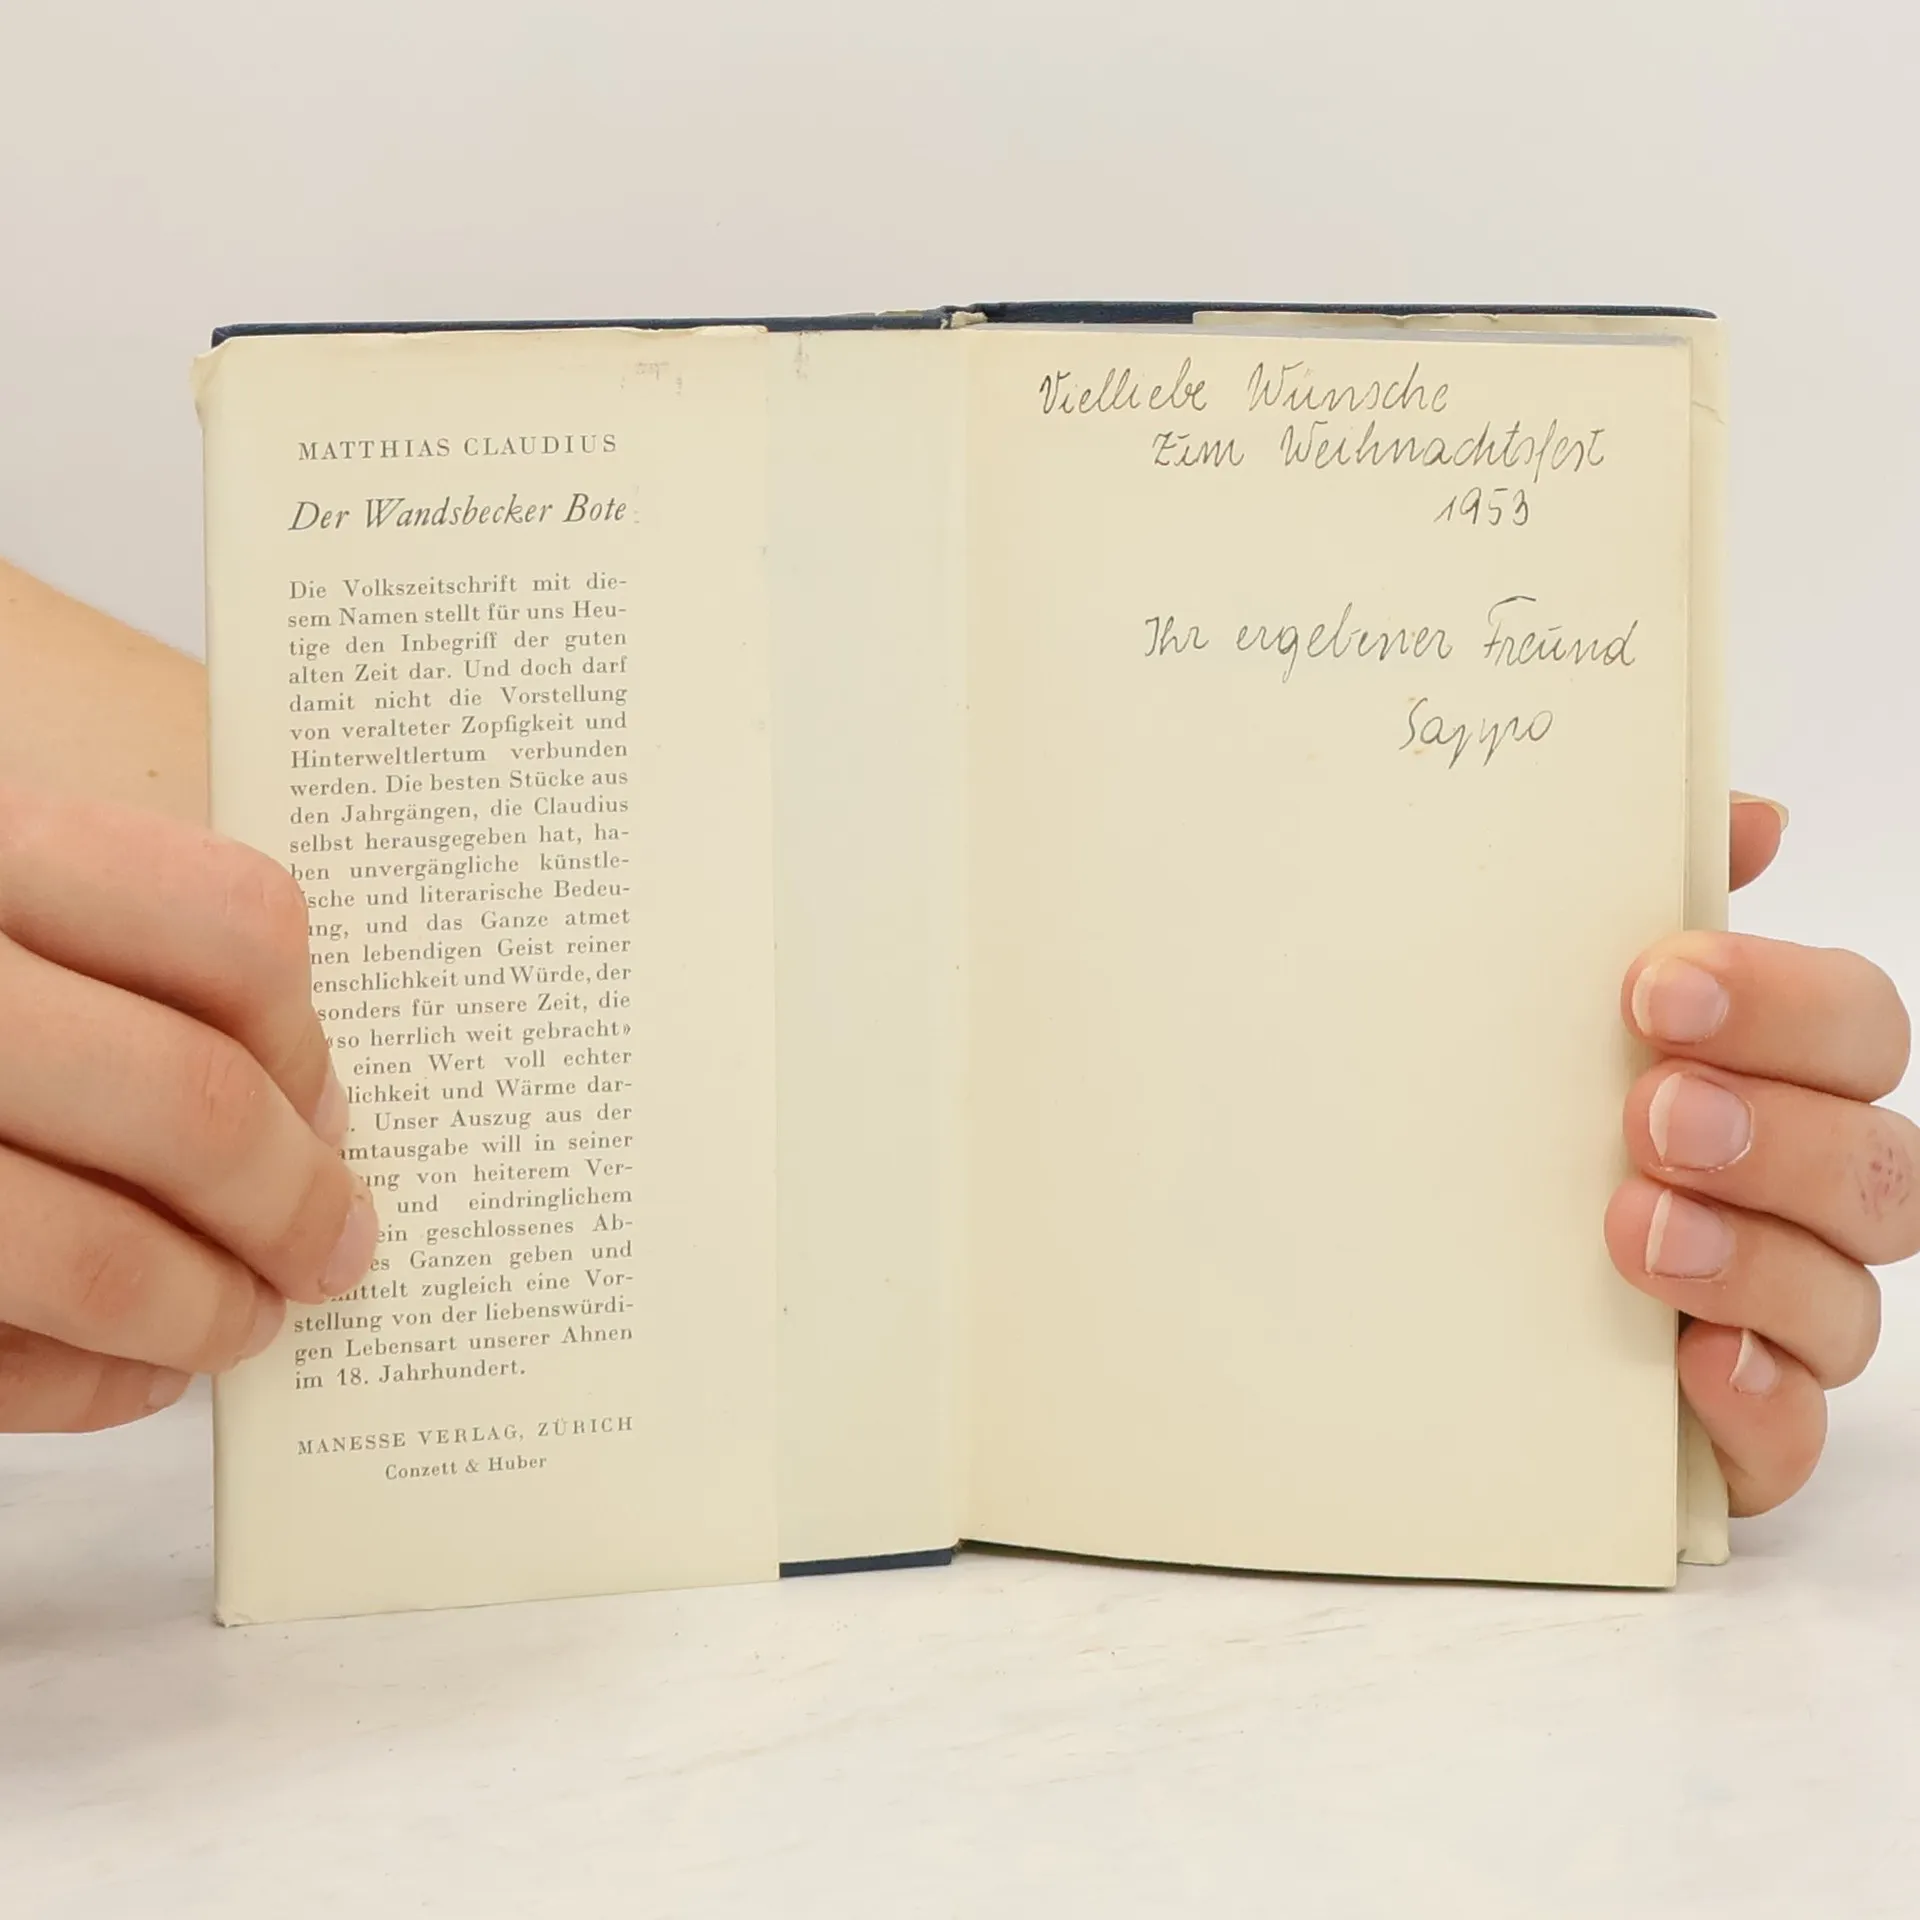 MATTHIAS CLAUDIUS
Der Wandsbecker Bote
Die Volkszeitschrift mit die-
sem Namen stellt für uns Heu-
tige den Inbegriff der guten
alten Zeit dar. Und doch darf
damit nicht die Vorstellung
von veralteter Zopfigkeit und
Hinterweltlertum verbunden
werden. Die besten Stücke aus
den Jahrgängen, die Claudius
selbst herausgegeben hat, ha-
ben unvergängliche künstle-
ische und literarische Bedeu-
ung, und das Ganze atmet
nen lebendigen Geist reiner
enschlichkeit und Würde, der
sonders für unsere Zeit, die
«so herrlich weit gebracht»
einen Wert voll echter
lichkeit und Wärme dar-
. Unser Auszug aus der
amtausgabe will in seiner
ung von heiterem Ver-
und eindringlichem
ein geschlossenes Ab-
es Ganzen geben und
ittelt zugleich eine Vor-
stellung von der liebenswürdi-
gen Lebensart unserer Ahnen
im 18. Jahrhundert.
MANESSE VERLAG, ZÜRICH
Conzett & Huber
Vielliebe Wünsche
zum Weihnachtsfest
1953
Ihr ergebener Freund